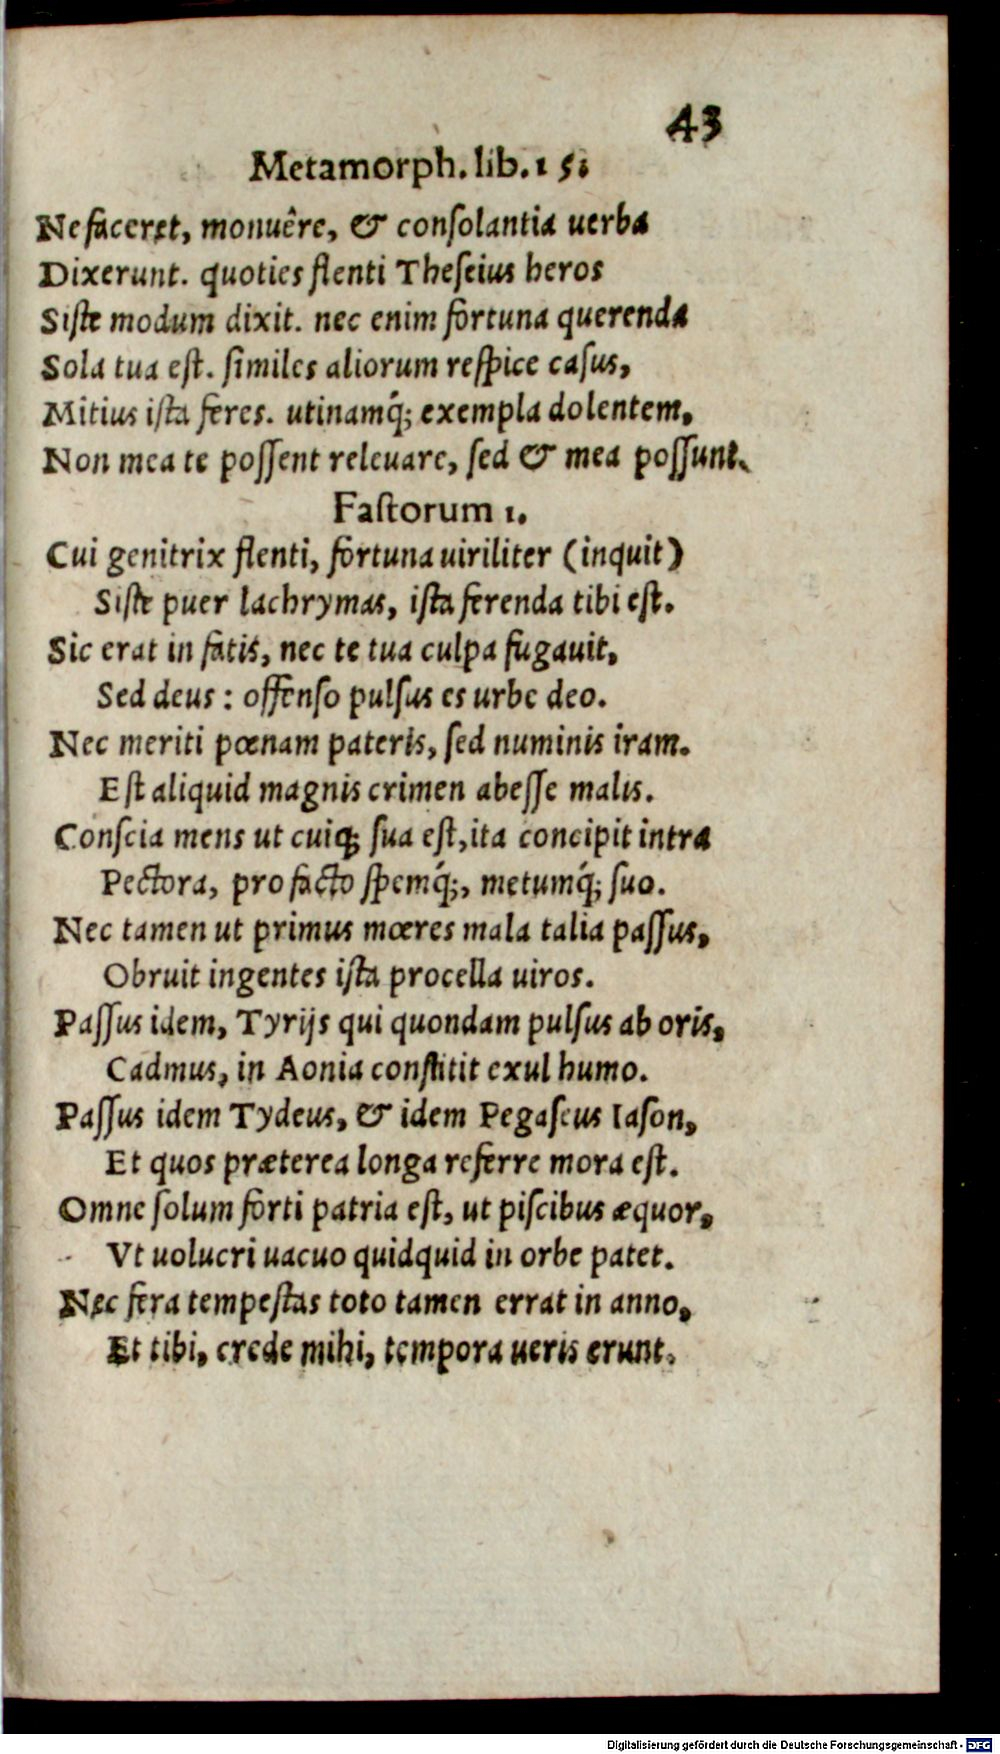 43
Metamorph. lib. 15.
Ne faceret, monuêre, & conſolantia uerba
Dixerunt. quoties flenti Theſeius heros
Siſte modum dixit. nec enim fortuna querenda
Sola tua eſt. ſimiles aliorum reſpice caſus,
Mitius iſta feres. utinamq́; exempla dolentem,
Non mea te poſſent releuare, ſed & mea poſſunt.
Faſtorum 1.
Cui genitrix flenti, fortuna uiriliter (inquit)
Siſte puer lachrymas, iſta ferenda tibi eſt.
Sic erat in fatis, nec te tua culpa fugauit,
Sed deus : offenſo pulſus es urbe deo.
Nec meriti pœnam pateris, ſed numinis iram.
Eſt aliquid magnis crimen abeſſe malis.
Conſcia mens ut cuiq; ſua eſt, ita concipit intra
Pectora, pro facto ſpemq́;, metumq́; ſuo.
Nec tamen ut primus mœres mala talia paſſus,
Obruit ingentes iſta procella uiros.
Paſſus idem, Tyrijs qui quondam pulſus ab oris,
Cadmus, in Aonia conſtitit exul humo.
Paſſus idem Tydeus, & idem Pegaſeus Iaſon,
Et quos præterea longa referre mora eſt.
Omne ſolum forti patria eſt, ut piſcibus æquor,
Vt uolucri uacuo quidquid in orbe patet.
Nec fera tempeſtas toto tamen errat in anno,
Et tibi, crede mihi, tempora ueris erunt.
Digitalisierung gefördert durch die Deutsche Forschungsgemeinschaft - DFG